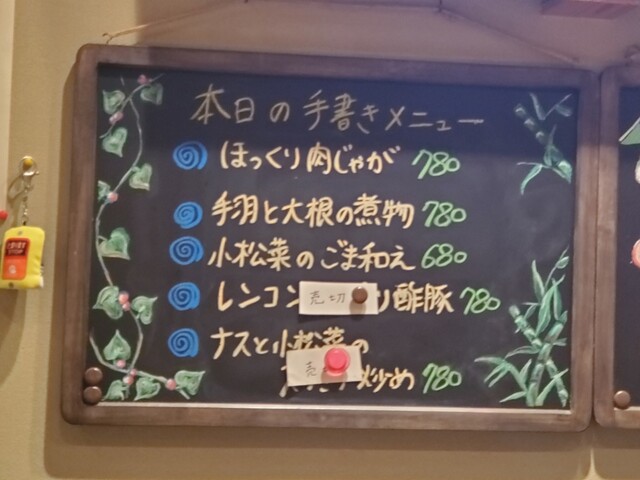 本日の手書きメニュー
ほっくり肉じゃが 780
手羽と大根の煮物 780
小松菜のごま和え 680
レンコン 売切 り酢豚 780
ナスと小松菜の
売
炒め 780